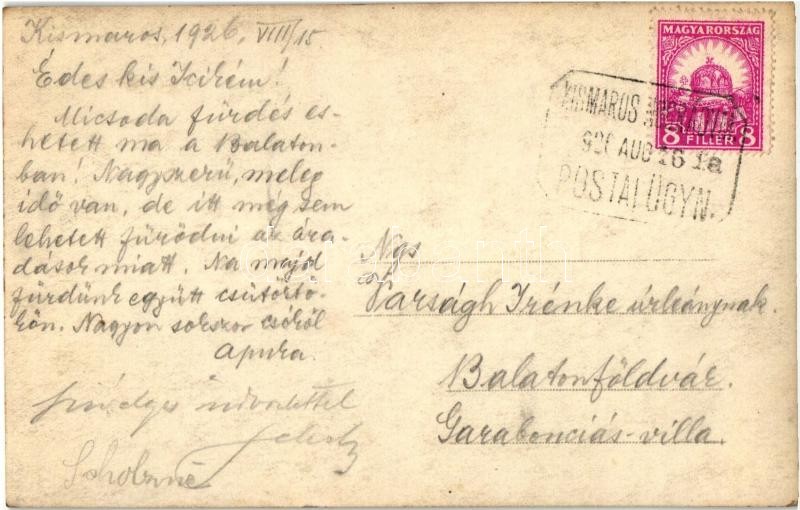 Kismaros, 1926. VIII/15
Édes kis Icirém!
Micsoda fürdés es-
hetett ma a Balaton-
ban! Nagyszerű, meleg
idő van, de itt még sem
lehetett fürödni az ára-
dások miatt. Na majd
fürdünk együtt csütörtö-
kön. Nagyon sokszor csókol
Apuka.
üdvözlettel
MAGYARORSZÁG
8 FILLÉR 8
KISMAROS
926 AUG 16 1a
POSTAI ÜGYN.
Ngs
Parságh Irénke úrleánynak.
Balatonföldvár.
Garabonciás-villa.